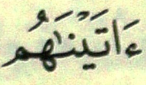 ءَاتَيْنَٰهُم